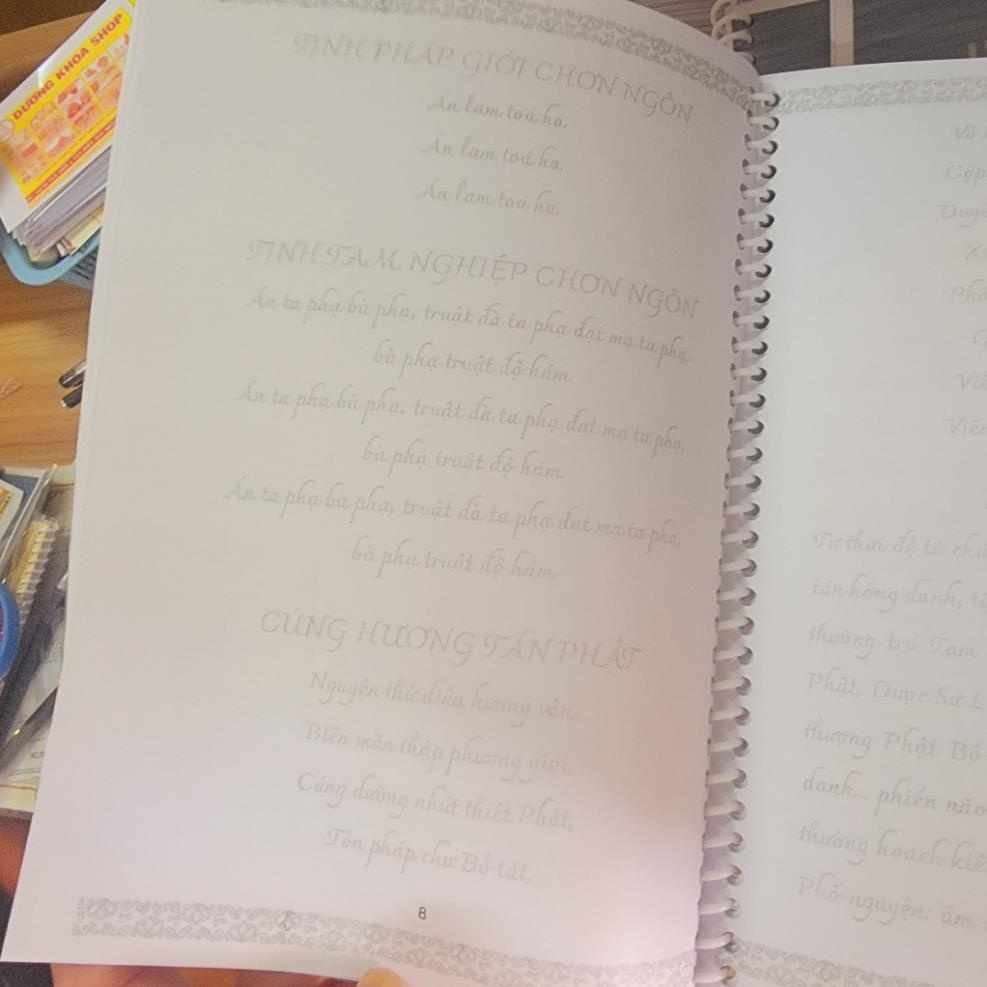 DƯƠNG KHOA SHOP
TỊNH PHÁP GIỚI CHƠN NGÔN
Án lam toá ha.
Án lam toá ha.
Án lam toá ha.
TỊNH TAM NGHIỆP CHƠN NGÔN
Án ta phạ bà phạ, truật đà ta phạ đạt mạ ta phạ,
bà phạ truật độ hám.
Án ta phạ bà phạ, truật đà ta phạ đạt mạ ta phạ,
bà phạ truật độ hám.
Án ta phạ bà phạ, truật đà ta phạ đạt mạ ta phạ,
bà phạ truật độ hám.
CÚNG HƯƠNG TÁN PHẬT
Nguyện thử diệu hương vân,
Biến mãn thập phương giới,
Cúng dường nhứt thiết Phật,
Tôn pháp chư Bồ tát,
8
Duy
Viên
Tư thời đệ tử
tán hồng danh,
thường trú Tam
Phật, Dược Sư
thượng Phật Bồ
danh... phiền não
thường hoạch
Phổ nguyện: âm